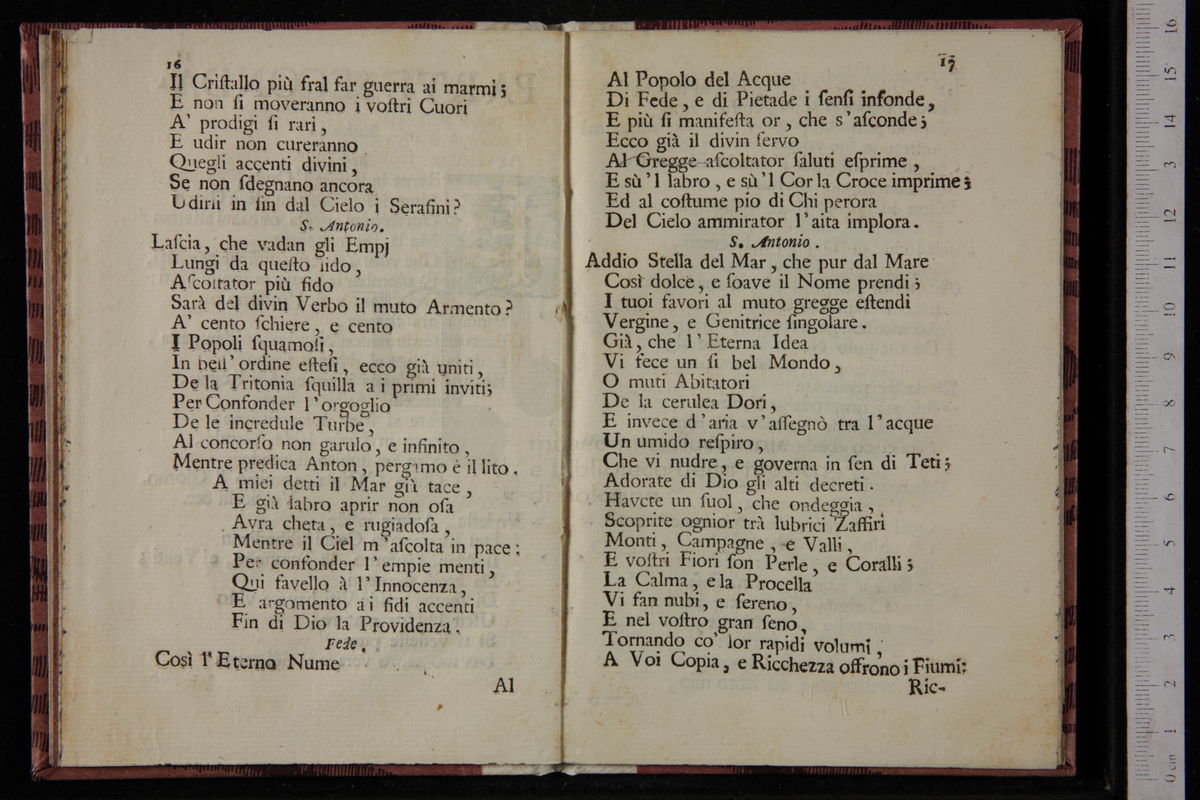 16
Il Criſtallo più fral far guerra ai marmi;
E non ſi moveranno i voſtri Cuori
A' prodigi ſi rari,
E udir non cureranno
Quegli accenti divini,
Se non ſdegnano ancora
Udirli in fin dal Cielo i Serafini?
S. Antonio.
Laſcia, che vadan gli Empj
Lungi da queſto lido,
Aſcoltator più fido
Sarà del divin Verbo il muto Armento?
A' cento ſchiere, e cento
I Popoli ſquamoſi,
In bell' ordine eſteſi, ecco già uniti,
De la Tritonia ſquilla a i primi inviti;
Per Confonder l'orgoglio
De le incredule Turbe,
Al concorſo non garulo, e infinito,
Mentre predica Anton, pergamo è il lito.
A miei detti il Mar già tace,
E già labro aprir non oſa
Avra cheta, e rugiadoſa,
Mentre il Ciel m'aſcolta in pace;
Per confonder l'empie menti,
Qui favello à l'Innocenza,
E argomento ai fidi accenti
Fin di Dio la Providenza.
Fede.
Così l'Eterno Nume
Al
17
Al Popolo del Acque
Di Fede, e di Pietade i ſenſi infonde,
E più ſi manifeſta or, che s'aſconde;
Ecco già il divin ſervo
Al Gregge aſcoltator ſaluti eſprime,
E sù 'l labro, e sù 'l Cor la Croce imprime;
Ed al coſtume pio di Chi perora
Del Cielo ammirator l'aita implora.
S. Antonio.
Addio Stella del Mar, che pur dal Mare
Così dolce, e ſoave il Nome prendi;
I tuoi favori al muto gregge eſtendi
Vergine, e Genitrice ſingolare.
Già, che l'Eterna Idea
Vi fece un ſi bel Mondo,
O muti Abitatori
De la cerulea Dori,
E invece d'aria v'aſſegnò tra l'acque
Un umido reſpiro,
Che vi nudre, e governa in ſen di Teti;
Adorate di Dio gli alti decreti.
Havete un ſuol, che ondeggia,
Scoprite ognior trà lubrici Zaffiri
Monti, Campagne, e Valli,
E voſtri Fiori ſon Perle, e Coralli;
La Calma, e la Procella
Vi fan nubi, e ſereno,
E nel voſtro gran ſeno,
Tornando co' lor rapidi volumi,
A Voi Copia, e Ricchezza offrono i Fiumi:
Ric-